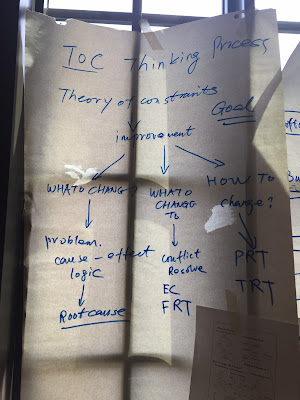 TOC Thinking Process
Theory of constraints
Goal
improvement
WHAT TO CHANGE?
problem.
cause – effect
logic
Root cause
WHAT TO
CHANGE
TO
Conflict
Resolve
EC
FRT
HOW TO
change?
PRT
TRT